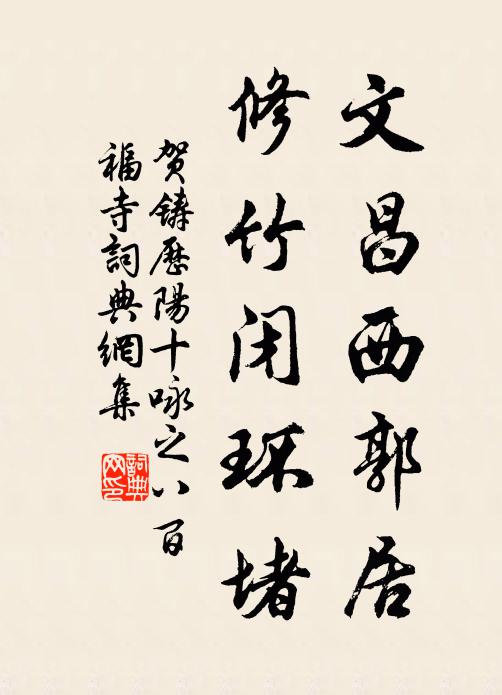 文昌西郭居
修竹闭环堵
贺铸历陽十咏之八百
福寺詞典網集
詞典网印